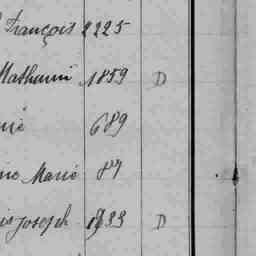 François 2225
Mathurin 1859 D
rie 689
Marie 87
Joseph 1933 D